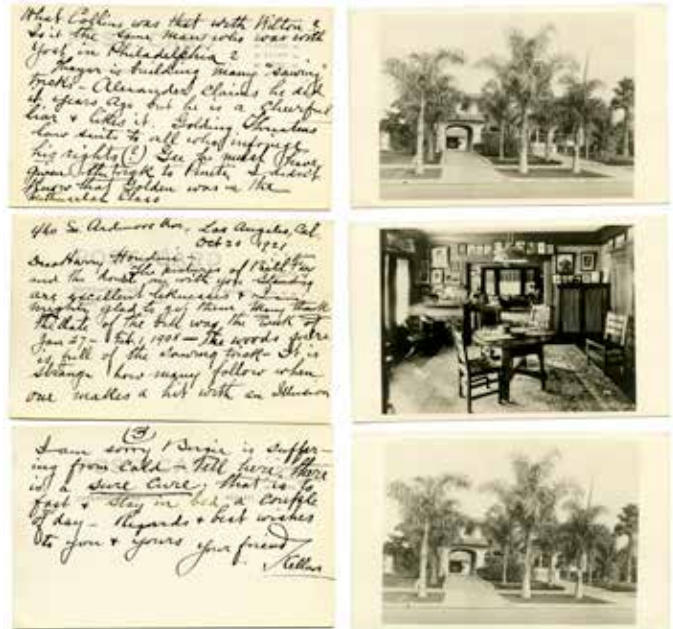 What Collins was that with Wilton?
Is it the same man who was with
Yost in Philadelphia?
Thayer is building many "Sawing"
tricks – Alexander claims he did
it years ago but he is a cheerful
liar & likes it. Golding threatens
law suits to all who infringe
his rights (?) Gee he must have
given the trick to I didn't
Know that Golden was in the
class
460 So. Ardmore Ave., Los Angeles, Cal.
Oct 20 1921
Dear Harry Houdini –
The pictures of
and the one with you standing
are excellent likenesses &
mighty glad to get them Many thanks
the date of the bill was the week of
Jan 27 – Feb, 1, 1908 – The woods
is full of the sawing trick – It is
strange how many follow when
one makes a hit with an Illusion
(3)
I am sorry is suffer-
ing from cold – Tell her there
is a sure cure, that is to
fast & stay in bed a couple
of day – Regards & best wishes
to you & yours your friend
Kellar